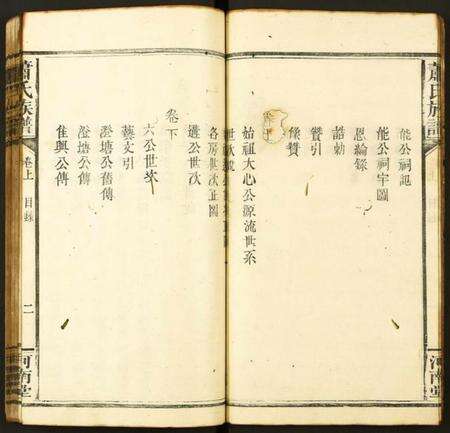 蕭氏族譜
河南堂
能公祠記
能公祠宇圖
恩綸錄
誥勅
贊引
像贊
始祖大心公源流世系
各房世次
遷公世次
卷下
六公世次
藝文引
澄塘公舊傳
澄塘公傳
隹興公傳
蕭氏族譜
卷上
目錄
二
河南堂